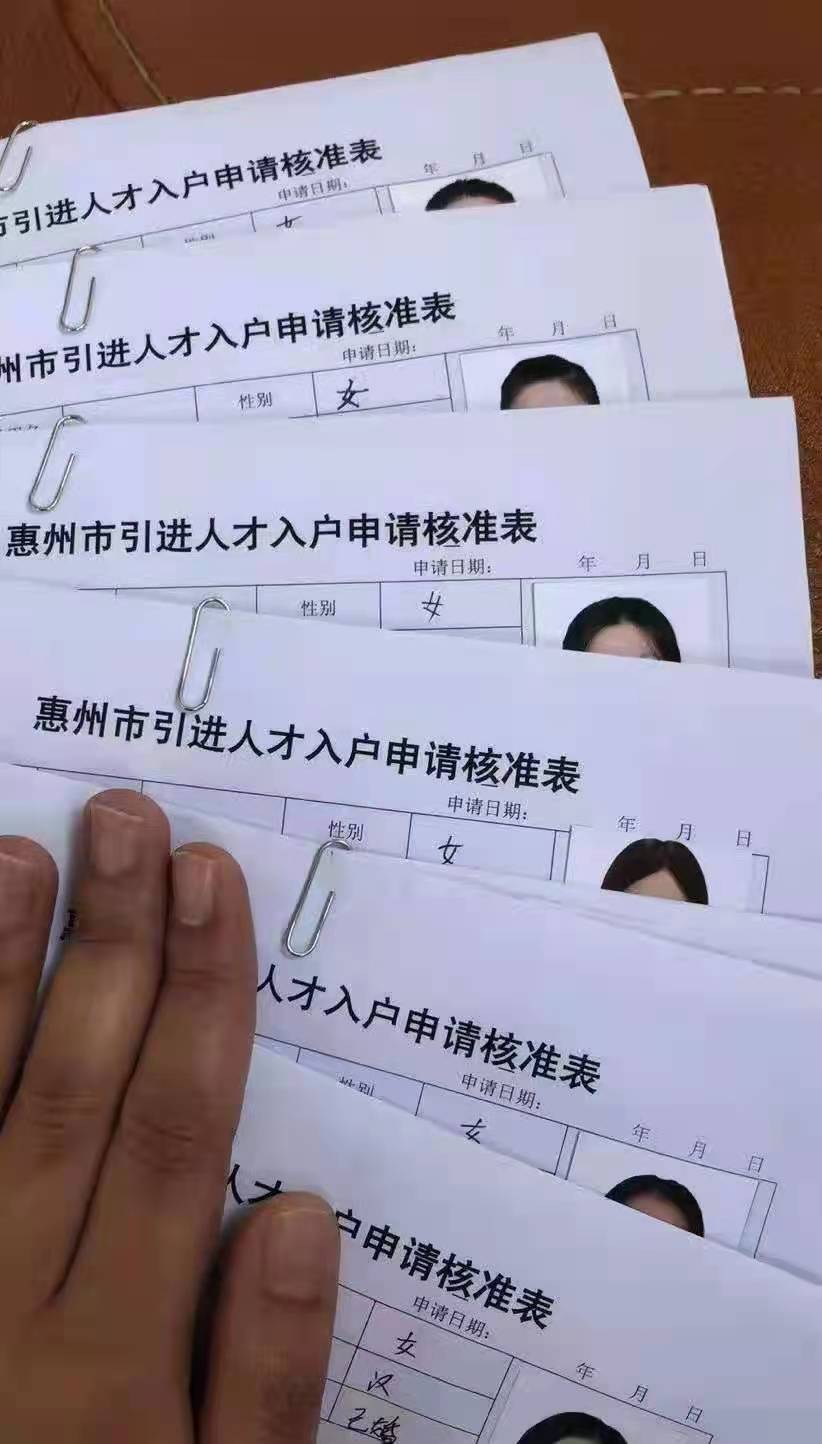 市引进人才入户申请核准表
申请日期： 年 月 日
性别 女
州市引进人才入户申请核准表
申请日期： 年 月 日
性别 女
惠州市引进人才入户申请核准表
申请日期： 年 月 日
性别 女
惠州市引进人才入户申请核准表
申请日期： 年 月 日
性别 女
人才入户申请核准表
申请日期： 年 月 日
性别 女
人才 户申请核准表
申请日期： 年 月 日
女
汉
已婚